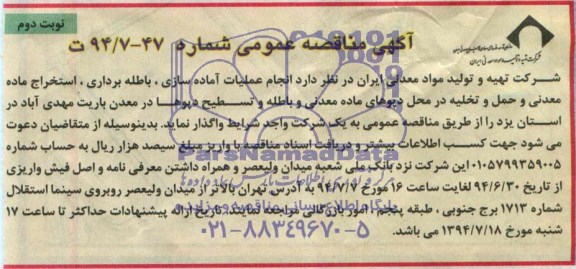 نوبت دوم
آگهی مناقصه عمومی شماره ۴۷-۹۴/۷ ت
شرکت تهیه و تولید مواد معدنی ایران در نظر دارد انجام عملیات آماده سازی ، باطله برداری ، استخراج ماده
معدنی و حمل و تخلیه در محل دپوهای ماده معدنی و باطله و تسطیح دپوها در معدن باریت مهدی آباد در
استان یزد را از طریق مناقصه عمومی به یک شرکت واجد شرایط واگذار نماید. بدینوسیله از متقاضیان دعوت
می شود جهت کسب اطلاعات بیشتر و دریافت اسناد مناقصه با واریز مبلغ سیصد هزار ریال به حساب شماره
۰۱۰۵۷۹۹۳۵۹۰۰۵ این شرکت نزد بانک ملی شعبه میدان ولیعصر و همراه داشتن معرفی نامه و اصل فیش واریزی
از تاریخ ۹۴/۶/۳۰ لغایت ساعت ۱۶ مورخ ۹۴/۷/۷ به آدرس تهران بالاتر از میدان ولیعصر روبروی سینما استقلال
شماره ۱۷۱۳ برج جنوبی ، طبقه پنجم ، امور بازرگانی مراجعه نمایند. تاریخ ارائه پیشنهادات حداکثر تا ساعت ۱۷
شنبه مورخ ۱۳۹۴/۷/۱۸ می باشد.
ParsNamadData
پایگاه اطلاع رسانی مناقصه و مزایده
۰۲۱-۸۸۳۴۹۶۷۰-۵